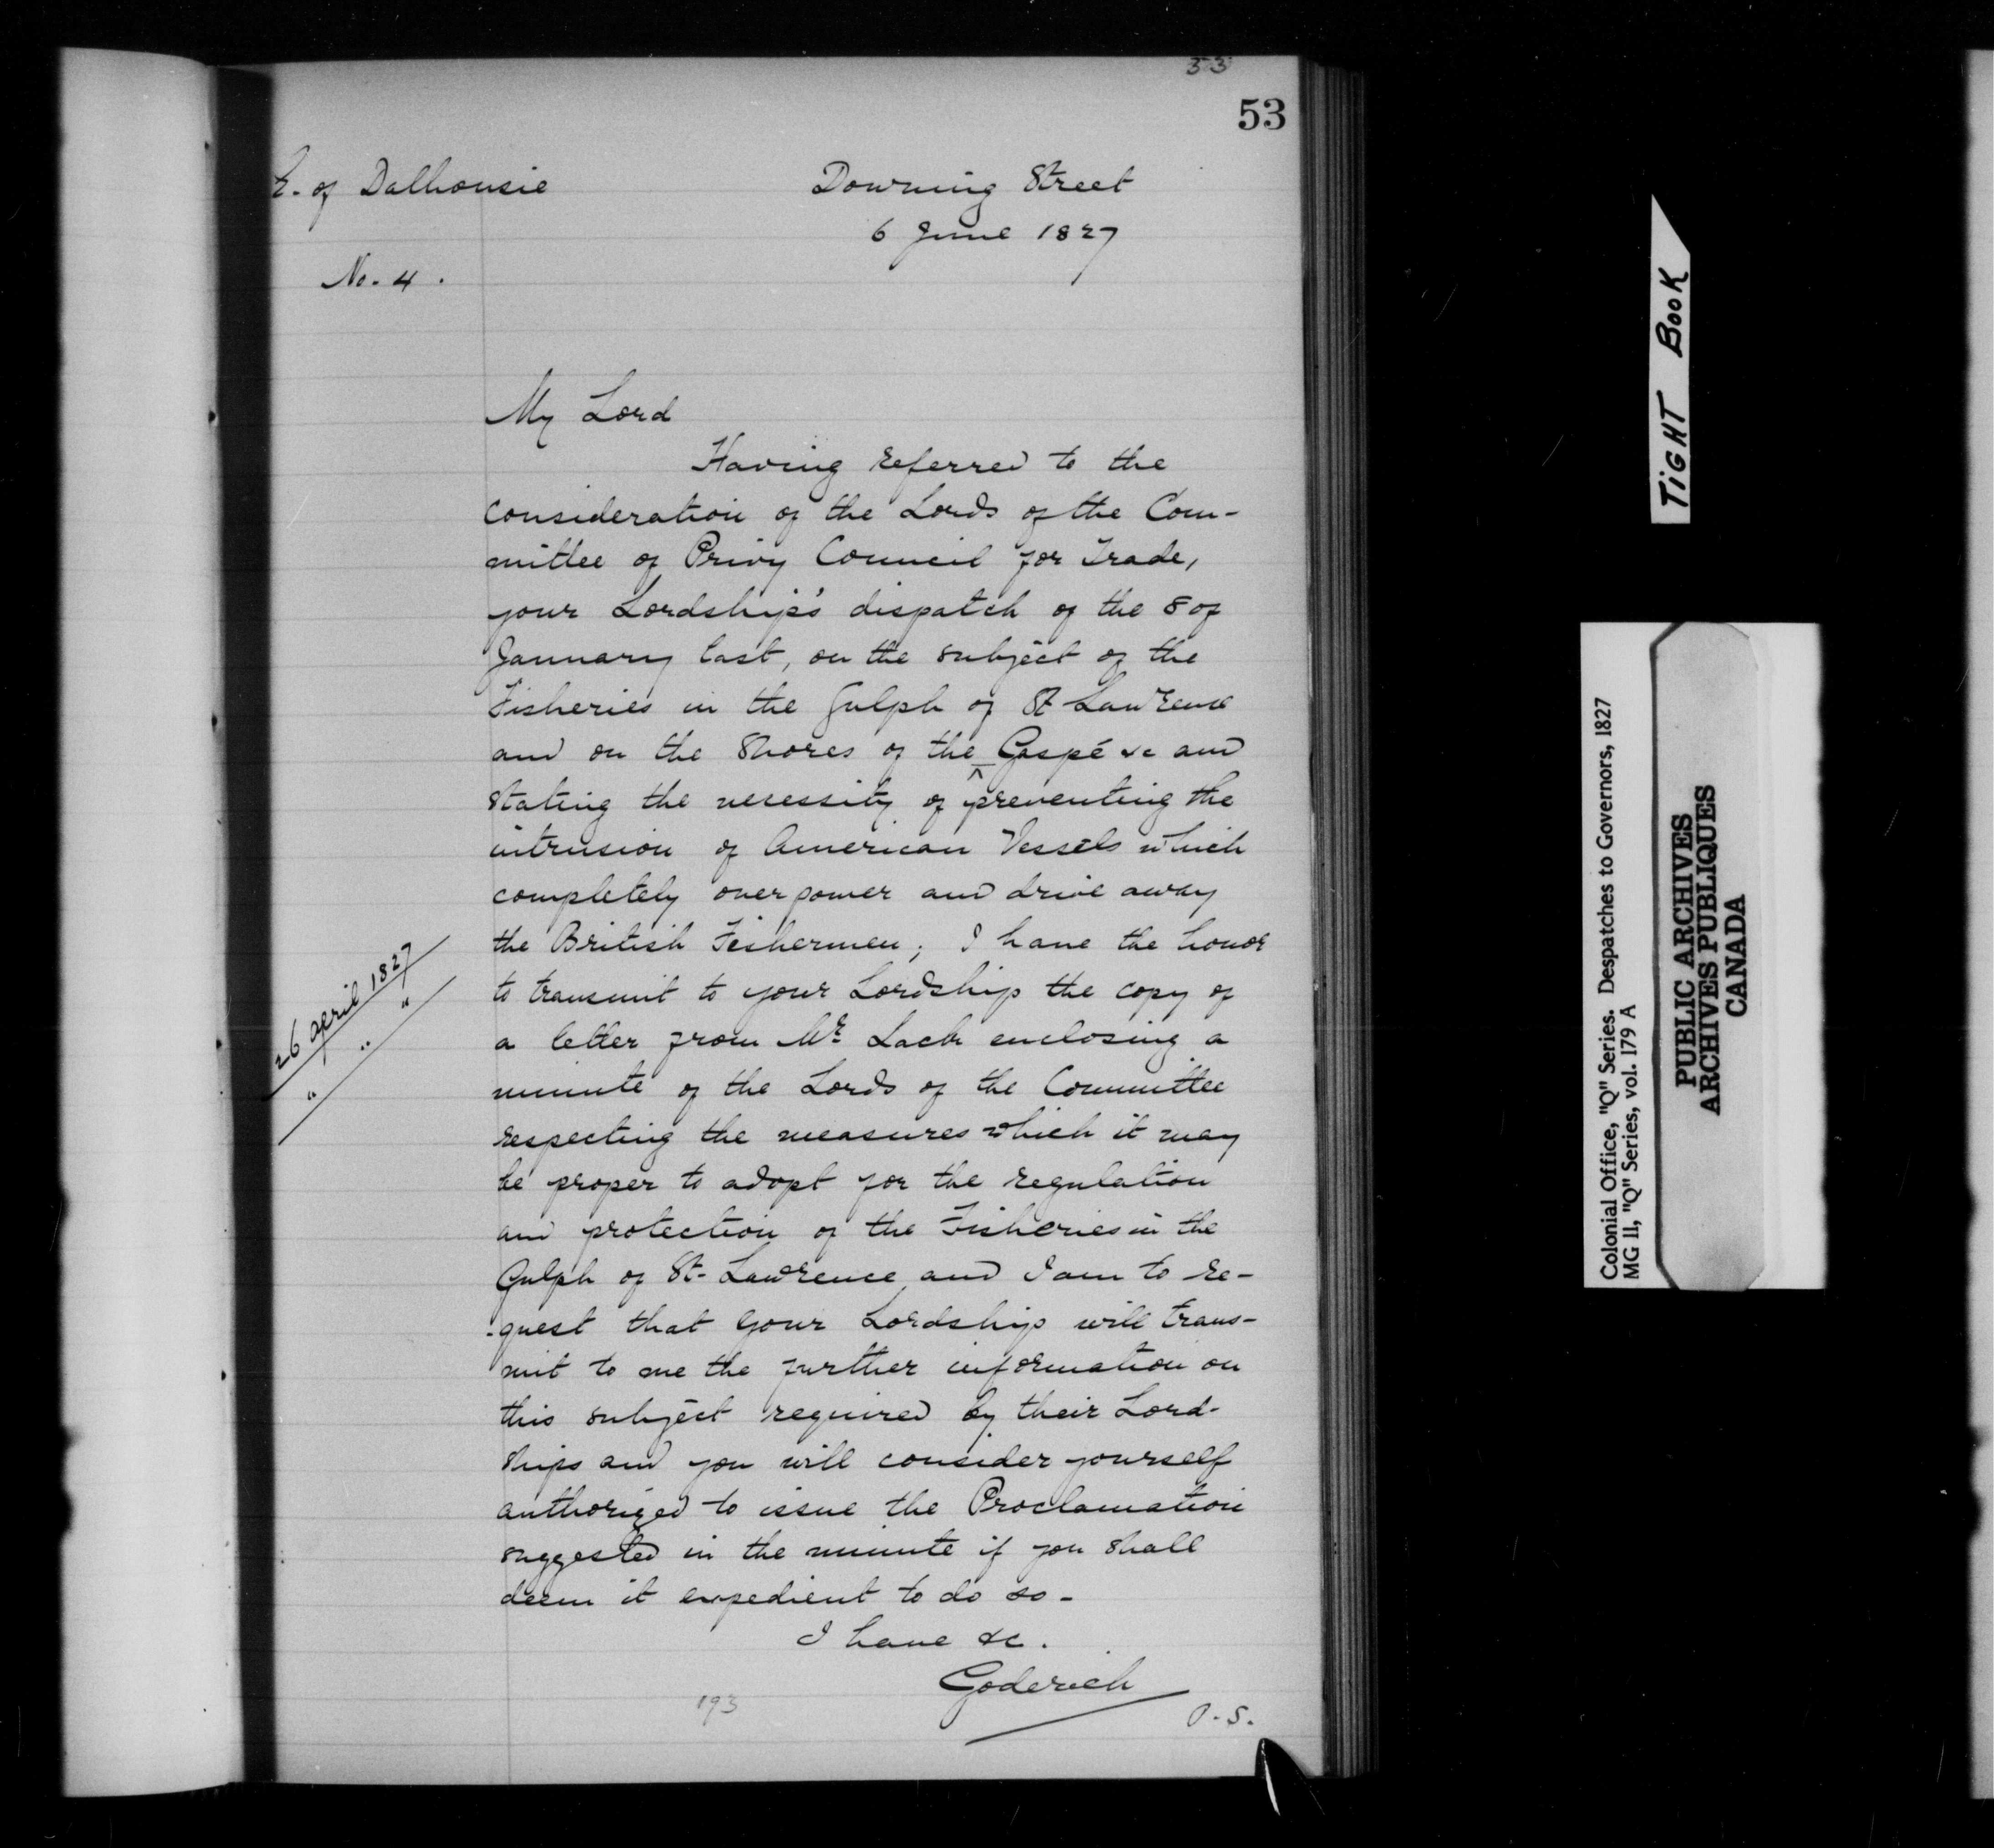 53
53
E. of Dalhousie
Downing Street
6 June 1827
No. 4.
My Lord
Having referred to the
consideration of the Lords of the Com-
mittee of Privy Council for Trade,
your Lordship's dispatch of the 8 of
January last, on the subject of the
Fisheries in the Gulph of St Lawrence
and on the Shores of the ‸ Gaspé &c and
stating the necessity of preventing the
intrusion of American Vessels which
completely overpower and drive away
the British Fishermen; I have the honor
to transmit to your Lordship the copy of
a letter from Mr Lack enclosing a
minute of the Lords of the Committee
respecting the measures which it may
be proper to adopt for the regulation
and protection of the Fisheries in the
Gulph of St- Lawrence, and I am to re-
-quest that your Lordship will trans-
mit to me the further information on
this subject required by their Lord-
ships and you will consider yourself
authorized to issue the Proclamation
suggested in the minute if you shall
deem it expedient to do so -
I have &c.
Goderich
P.S.
193
26 april 1827
" " "
TIGHT BOOK
Colonial Office, "Q" Series. Despatches to Governors, 1827
MG 11, "Q" Series, vol. 179 A
PUBLIC ARCHIVES
ARCHIVES PUBLIQUES
CANADA